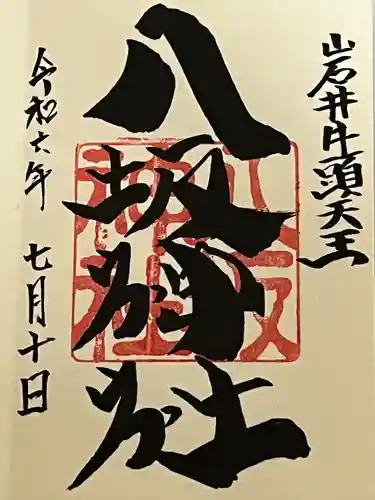 岩井牛頭天王
八坂神社
八坂
神社
令和六年 七月十日